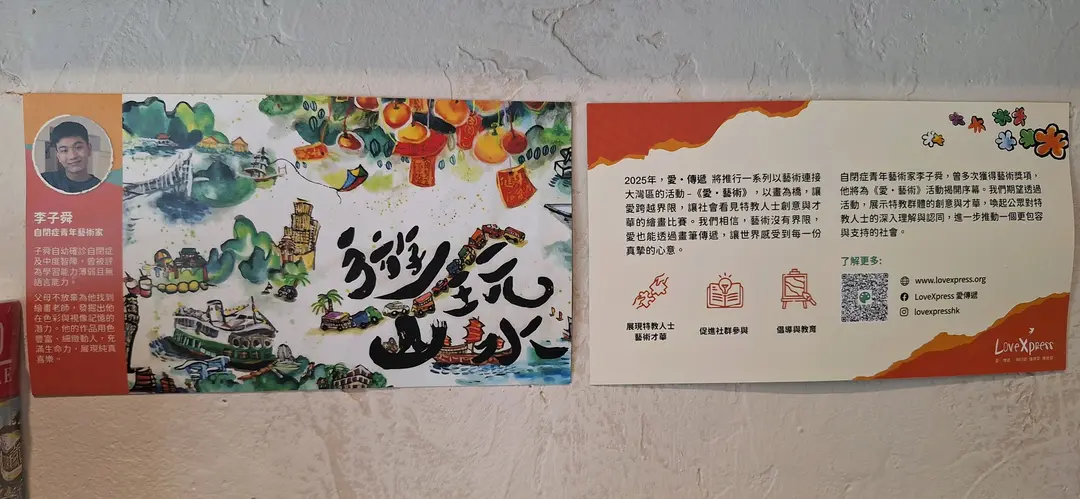 李子舜
自閉症青年藝術家
子舜自幼確診自閉症
及中度智障，曾被評
為學習能力薄弱且無
語言能力。
父母不放棄為他找到
繪畫老師，發掘出他
在色彩與視像記憶的
潛力。他的作品用色
豐富、細緻動人，充
滿生命力，展現純真
喜樂。
遊玩
山水
2025年，愛·傳遞 將推行一系列以藝術連接
大灣區的活動 –《愛·藝術》，以畫為橋，讓
愛跨越界限，讓社會看見特教人士創意與才
華的繪畫比賽。我們相信，藝術沒有界限，
愛也能透過畫筆傳遞，讓世界感受到每一份
真摯的心意。
展現特教人士
藝術才華
促進社群參與
倡導與教育
自閉症青年藝術家李子舜，曾多次獲得藝術獎項，
他將為《愛·藝術》活動揭開序幕。我們期望透過
活動，展示特教群體的創意與才華，喚起公眾對特
教人士的深入理解與認同，進一步推動一個更包容
與支持的社會。
了解更多:
www.lovexpress.org
LoveXpress 愛傳遞
lovexpresshk
LoveXpress